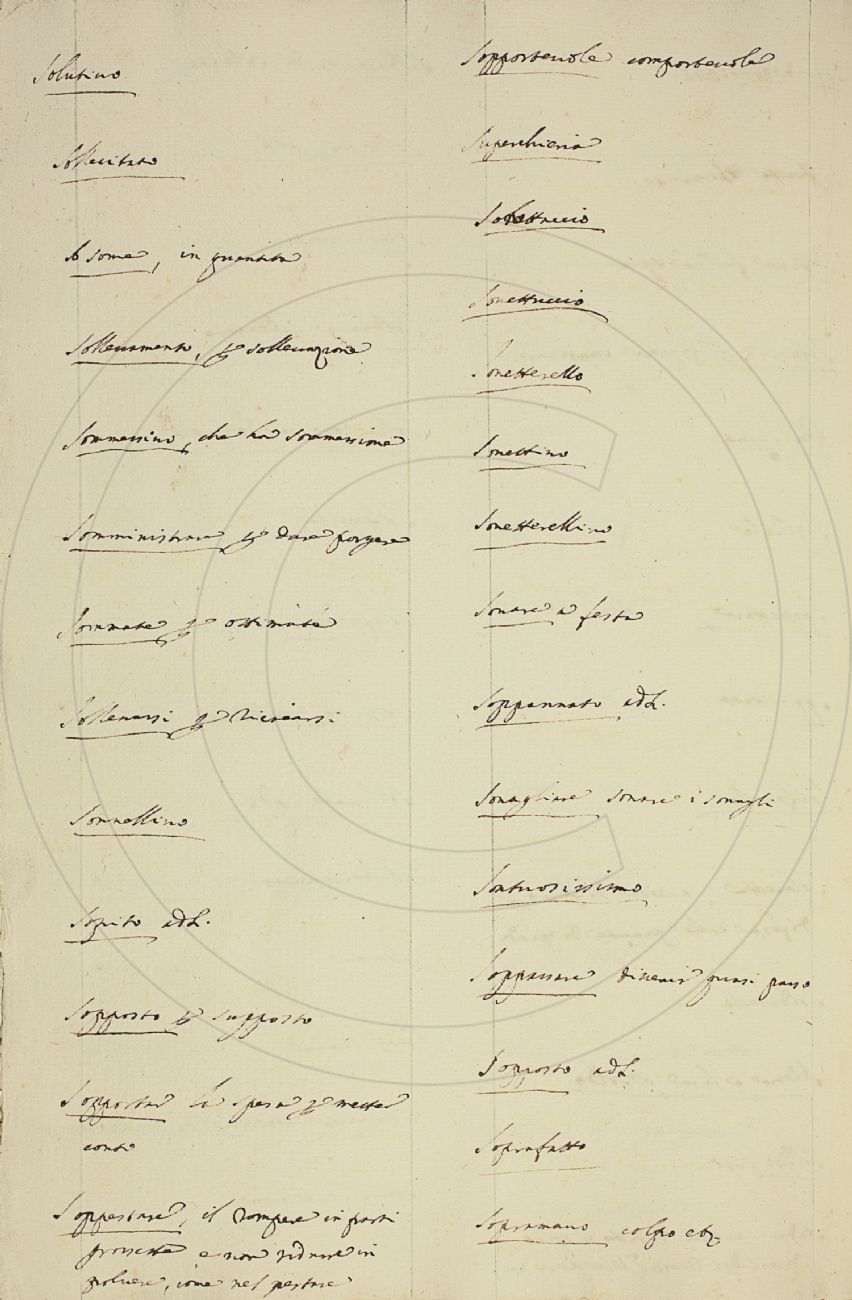 Solutivo
Sollecitato
A some, in quantità
Sollevamento, p sollevazione
Sommessivo, che ha sommessione
Somministrare p dare porgere
Sommate p ottimate
Sollevarsi p Ricrearsi
Sonnellino
Sopito add.
Sopposto p supposto
Sopportar la spesa p metter
conto
Soppestare, il rompere in parti
grossette e non ridurre in
polvere, come nel pestare
Sopportevole comportevole
Superchieria
Sonettuccio
Sonetterello
Sonettino
Sonetterellino
Sonare a festa
Soppannato add.
Sonagliare sonare i sonagli
Sontuosissimo
Soppassare divenir quasi passo
Sopposto add.
Soprafatto
Sopramano colpo